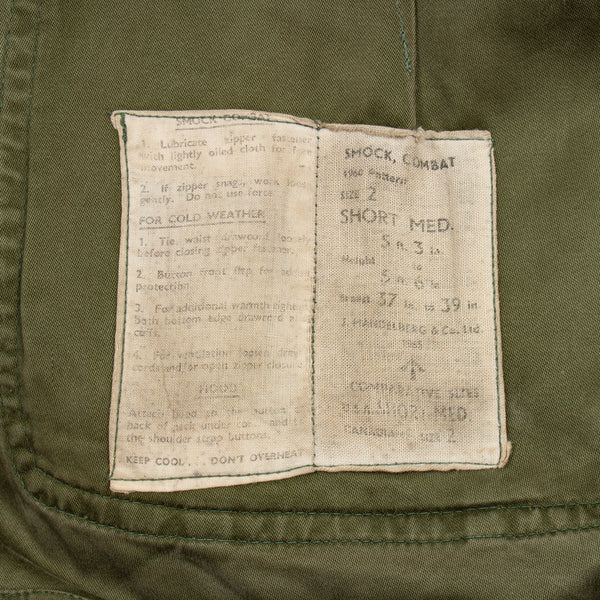 SMOCK, COMBAT
1. Lubricate zipper fastener
with lightly oiled cloth for free
movement.
2. If zipper snags, work loose
gently. Do not use force.
FOR COLD WEATHER
1. Tie waist drawcord loosely
before closing zipper fastener.
2. Button front flap for added
protection.
3. For additional warmth tighten
both bottom edge drawcord and
cuffs.
4. For ventilation loosen draw
cords and/or open zipper closure
HOOD
Attach hood to the button
back of neck under collar and to
the shoulder strap buttons.
KEEP COOL . . . DON'T OVERHEAT
SMOCK, COMBAT
1960 Pattern
SIZE 2
SHORT MED.
5 ft. 3 in.
Height to
5 ft. 6 in.
Breast 37 in. to 39 in.
J. MANDELBERG & Co. Ltd.
COMPARATIVE SIZES
U.S.A. SHORT MED.
CANADIAN SIZE 2